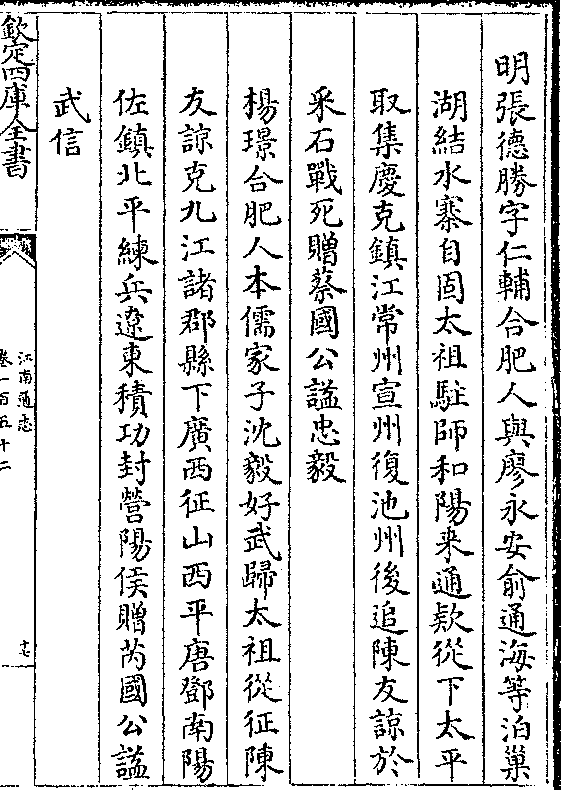 明張德勝字仁輔合肥人與廖永安俞通海等泊巢
湖結水寨自固太祖駐師和陽来通欵從下太平
取集慶克鎮江常州宣州復池州後追陳友諒於
采石戰死贈蔡國公諡忠毅
楊璟合肥人本儒家子沈毅好武歸太祖從征陳
友諒克九江諸郡縣下廣西征山西平唐鄧南陽
佐鎮北平練兵遼東積功封營陽侯贈芮國公諡
武信
欽定四庫全書
江南通志
卷一百五十二